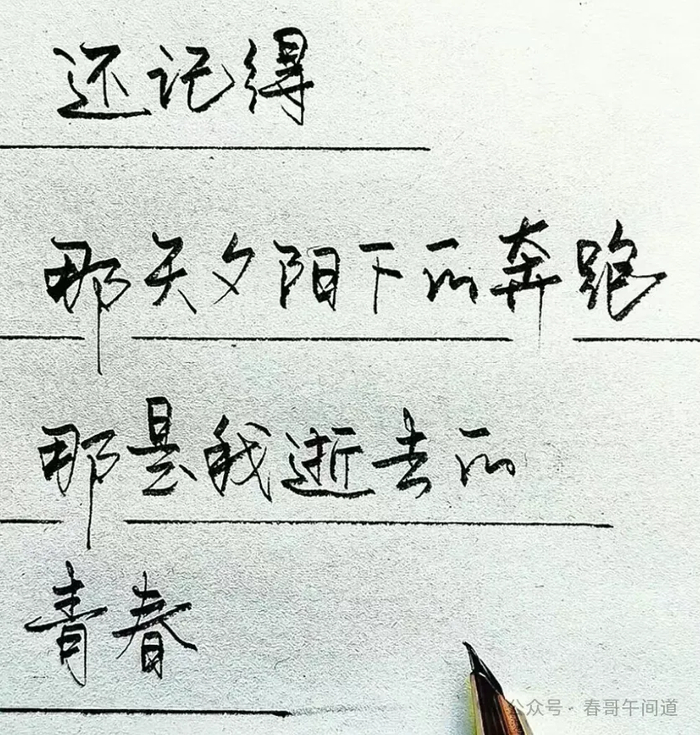 还记得
那天夕阳下的奔跑
那是我逝去的
青春
公众号·春哥午间道